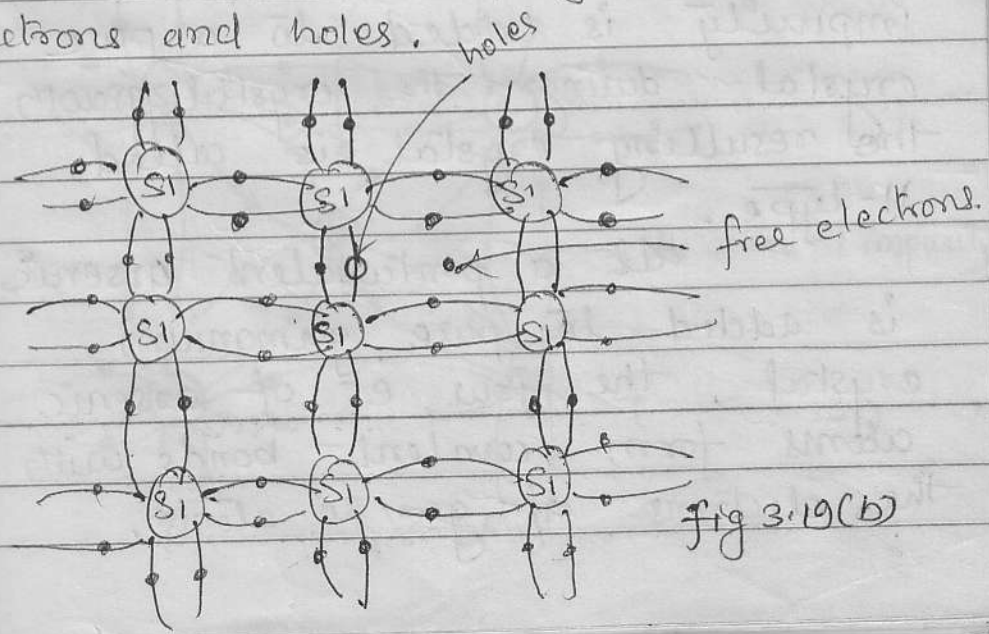 ctrons and holes.
holes
Si Si Si
free electrons.
Si Si Si
Si Si Si
fig 3.19(b)